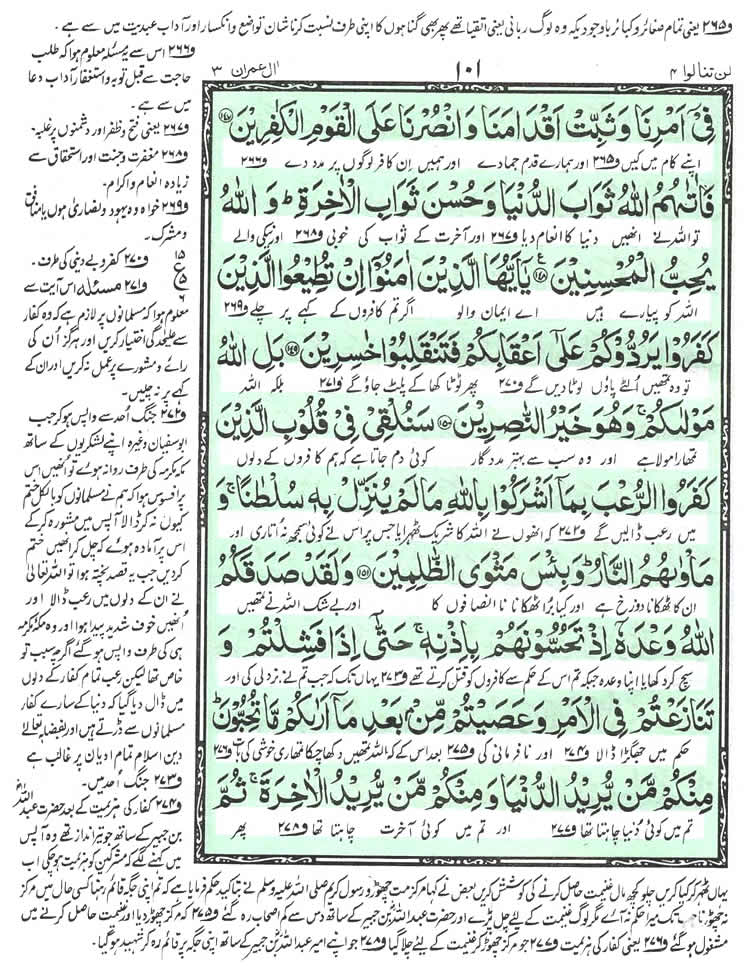 و۲۶۵ یعنی تمام صغائر و کبائر باوجودیکہ وہ لوگ ربانی یعنی اتقیا تھے پھر بھی گناہوں کا اپنی طرف نسبت کرنا شان تواضع و انکسار اور آداب عبدیت میں سے ہے ۔
لن تنالوا ۴
۱۰۱
اٰل عمران ۳
فِیْۤ اَمْرِنَا وَ ثَبِّتْ اَقْدَامَنَا وَ انْصُرْنَا عَلَی الْقَوْمِ الْکٰفِرِیْنَ ﴿۱۴۷﴾
اپنے کام میں کیں و۲۶۵ اور ہمارے قدم جما دے اور ہمیں ان کافر لوگوں پر مدد دے و۲۶۶
فَاٰتٰىهُمُ اللّٰهُ ثَوَابَ الدُّنْیَا وَ حُسْنَ ثَوَابِ الْاٰخِرَةِؕ وَ اللّٰهُ
تو اللہ نے انھیں دنیا کا انعام دیا و۲۶۷ اور آخرت کے ثواب کی خوبی و۲۶۸ اور نیکی والے
یُحِبُّ الْمُحْسِنِیْنَ ﴿۱۴۸﴾ یٰۤاَیُّهَا الَّذِیْنَ اٰمَنُوْۤا اِنْ تُطِیْعُوا الَّذِیْنَ
اللہ کو پیارے ہیں اے ایمان والو اگر تم کافروں کے کہے پر چلے و۲۶۹
کَفَرُوْا یَرُدُّوْکُمْ عَلٰۤی اَعْقَابِکُمْ فَتَنْقَلِبُوْا خٰسِرِیْنَ ﴿۱۴۹﴾ بَلِ اللّٰهُ
تو وہ تمھیں الٹے پاؤں لوٹا دیں گے و۲۷۰ پھر ٹوٹا کھا کے پلٹ جاؤ گے و۲۷۱ بلکہ اللہ
مَوْلٰىکُمْۚ وَ هُوَ خَیْرُ النّٰصِرِیْنَ ﴿۱۵۰﴾ سَنُلْقِیْ فِیْ قُلُوْبِ الَّذِیْنَ
تمھارا مولا ہے اور وہ سب سے بہتر مددگار کوئی دم جاتا ہے کہ ہم کافروں کے دلوں
کَفَرُوا الرُّعْبَ بِمَاۤ اَشْرَکُوْا بِاللّٰهِ مَا لَمْ یُنَزِّلْ بِهٖ سُلْطٰنًاۚ وَ
میں رعب ڈالیں گے و۲۷۲ کہ انھوں نے اللہ کا شریک ٹھہرایا جس پر اس نے کوئی سمجھ نہ اتاری اور
مَاْوٰىهُمُ النَّارُؕ وَ بِئْسَ مَثْوَی الظّٰلِمِیْنَ ﴿۱۵۱﴾ وَ لَقَدْ صَدَقَکُمُ
ان کا ٹھکانا دوزخ ہے اور کیا برا ٹھکانا نا انصافوں کا اور بے شک اللہ نے تمھیں
اللّٰهُ وَعْدَهٗۤ اِذْ تَحُسُّوْنَهُمْ بِاِذْنِهٖۚ حَتّٰۤی اِذَا فَشِلْتُمْ وَ
سچ کر دکھایا اپنا وعدہ جبکہ تم اس کے حکم سے کافروں کو قتل کرتے تھے و۲۷۳ یہاں تک کہ جب تم نے بزدلی کی اور
تَنَازَعْتُمْ فِی الْاَمْرِ وَ عَصَیْتُمْ مِّنْۢ بَعْدِ مَاۤ اَرٰىکُمْ مَّا تُحِبُّوْنَؕ
حکم میں جھگڑا ڈالا و۲۷۴ اور نافرمانی کی و۲۷۵ بعد اس کے کہ اللہ تمھیں دکھا چکا تمھاری خوشی کی بات و۲۷۶
مِنْکُمْ مَّنْ یُّرِیْدُ الدُّنْیَا وَ مِنْکُمْ مَّنْ یُّرِیْدُ الْاٰخِرَةَۚ ثُمَّ
تم میں کوئی دنیا چاہتا تھا و۲۷۷ اور تم میں کوئی آخرت چاہتا تھا و۲۷۸ پھر
و۲۶۶ اس سے یہ مسئلہ معلوم ہوا کہ طلب
حاجت سے قبل توبہ و استغفار آداب دعا
میں سے ہے ۔
و۲۶۷ یعنی فتح و ظفر اور دشمنوں پر غلبہ ۔
و۲۶۸ مغفرت و جنت اور استحقاق سے
زیادہ انعام و اکرام ۔
و۲۶۹ خواہ وہ یہود و نصاریٰ ہوں یا منافق
و مشرک ۔
و۲۷۰ کفر و بے دینی کی طرف ۔
و۲۷۱ مسئلہ اس آیت سے
معلوم ہوا کہ مسلمانوں پر لازم ہے کہ وہ کفار
سے علیحدگی اختیار کریں اور ہرگز ان کی
رائے و مشورے پر عمل نہ کریں اور ان کے
کہے پر نہ چلیں ۔
و۲۷۲ جنگ احد سے واپس ہو کر جب
ابوسفیان وغیرہ اپنے لشکریوں کے ساتھ
مکہ مکرمہ کی طرف روانہ ہوئے تو انھیں اس
پر افسوس ہوا کہ ہم نے مسلمانوں کو بالکل ختم
کیوں نہ کر ڈالا آپس میں مشورہ کر کے
اس پر آمادہ ہوئے کہ چل کر انھیں ختم
کر دیں جب یہ قصد پختہ ہوا تو اللہ تعالیٰ
نے ان کے دلوں میں رعب ڈالا اور
انھیں خوف شدید پیدا ہوا اور وہ مکہ مکرمہ
ہی کی طرف واپس ہو گئے اگرچہ سبب تو
خاص تھا لیکن رعب تمام کفار کے دلوں
میں ڈال دیا گیا کہ دنیا کے سارے کفار
مسلمانوں سے ڈرتے ہیں اور بفضلہ تعالیٰ
دین اسلام تمام ادیان پر غالب ہے
و۲۷۳ جنگ احد میں ۔
و۲۷۴ کفار کی ہزیمت کے بعد حضرت عبداللہ
بن جبیر کے ساتھ جو تیر انداز تھے وہ آپس
میں کہنے لگے کہ مشرکین کو ہزیمت ہو چکی اب
یہاں ٹھہر کر کیا کریں چلو کچھ مال غنیمت حاصل کرنے کی کوشش کریں بعض نے کہا مرکز مت چھوڑو رسول کریم صلی اللہ علیہ وسلم نے بتاکید حکم فرمایا ہے کہ تم اپنی جگہ قائم رہنا کسی حال میں مرکز
نہ چھوڑنا جب تک میرا حکم نہ آئے مگر لوگ غنیمت کے لئے چل پڑے اور حضرت عبداللہ بن جبیر کے ساتھ دس سے کم اصحاب رہ گئے و۲۷۵ کہ مرکز چھوڑ دیا اور غنیمت حاصل کرنے میں
مشغول ہو گئے و۲۷۶ یعنی کفار کی ہزیمت و۲۷۷ جو مرکز چھوڑ کر غنیمت کے لئے چلا گیا و۲۷۸ جو اپنے امیر عبداللہ بن جبیر کے ساتھ اپنی جگہ پر قائم رہ کر شہید ہو گیا ۔